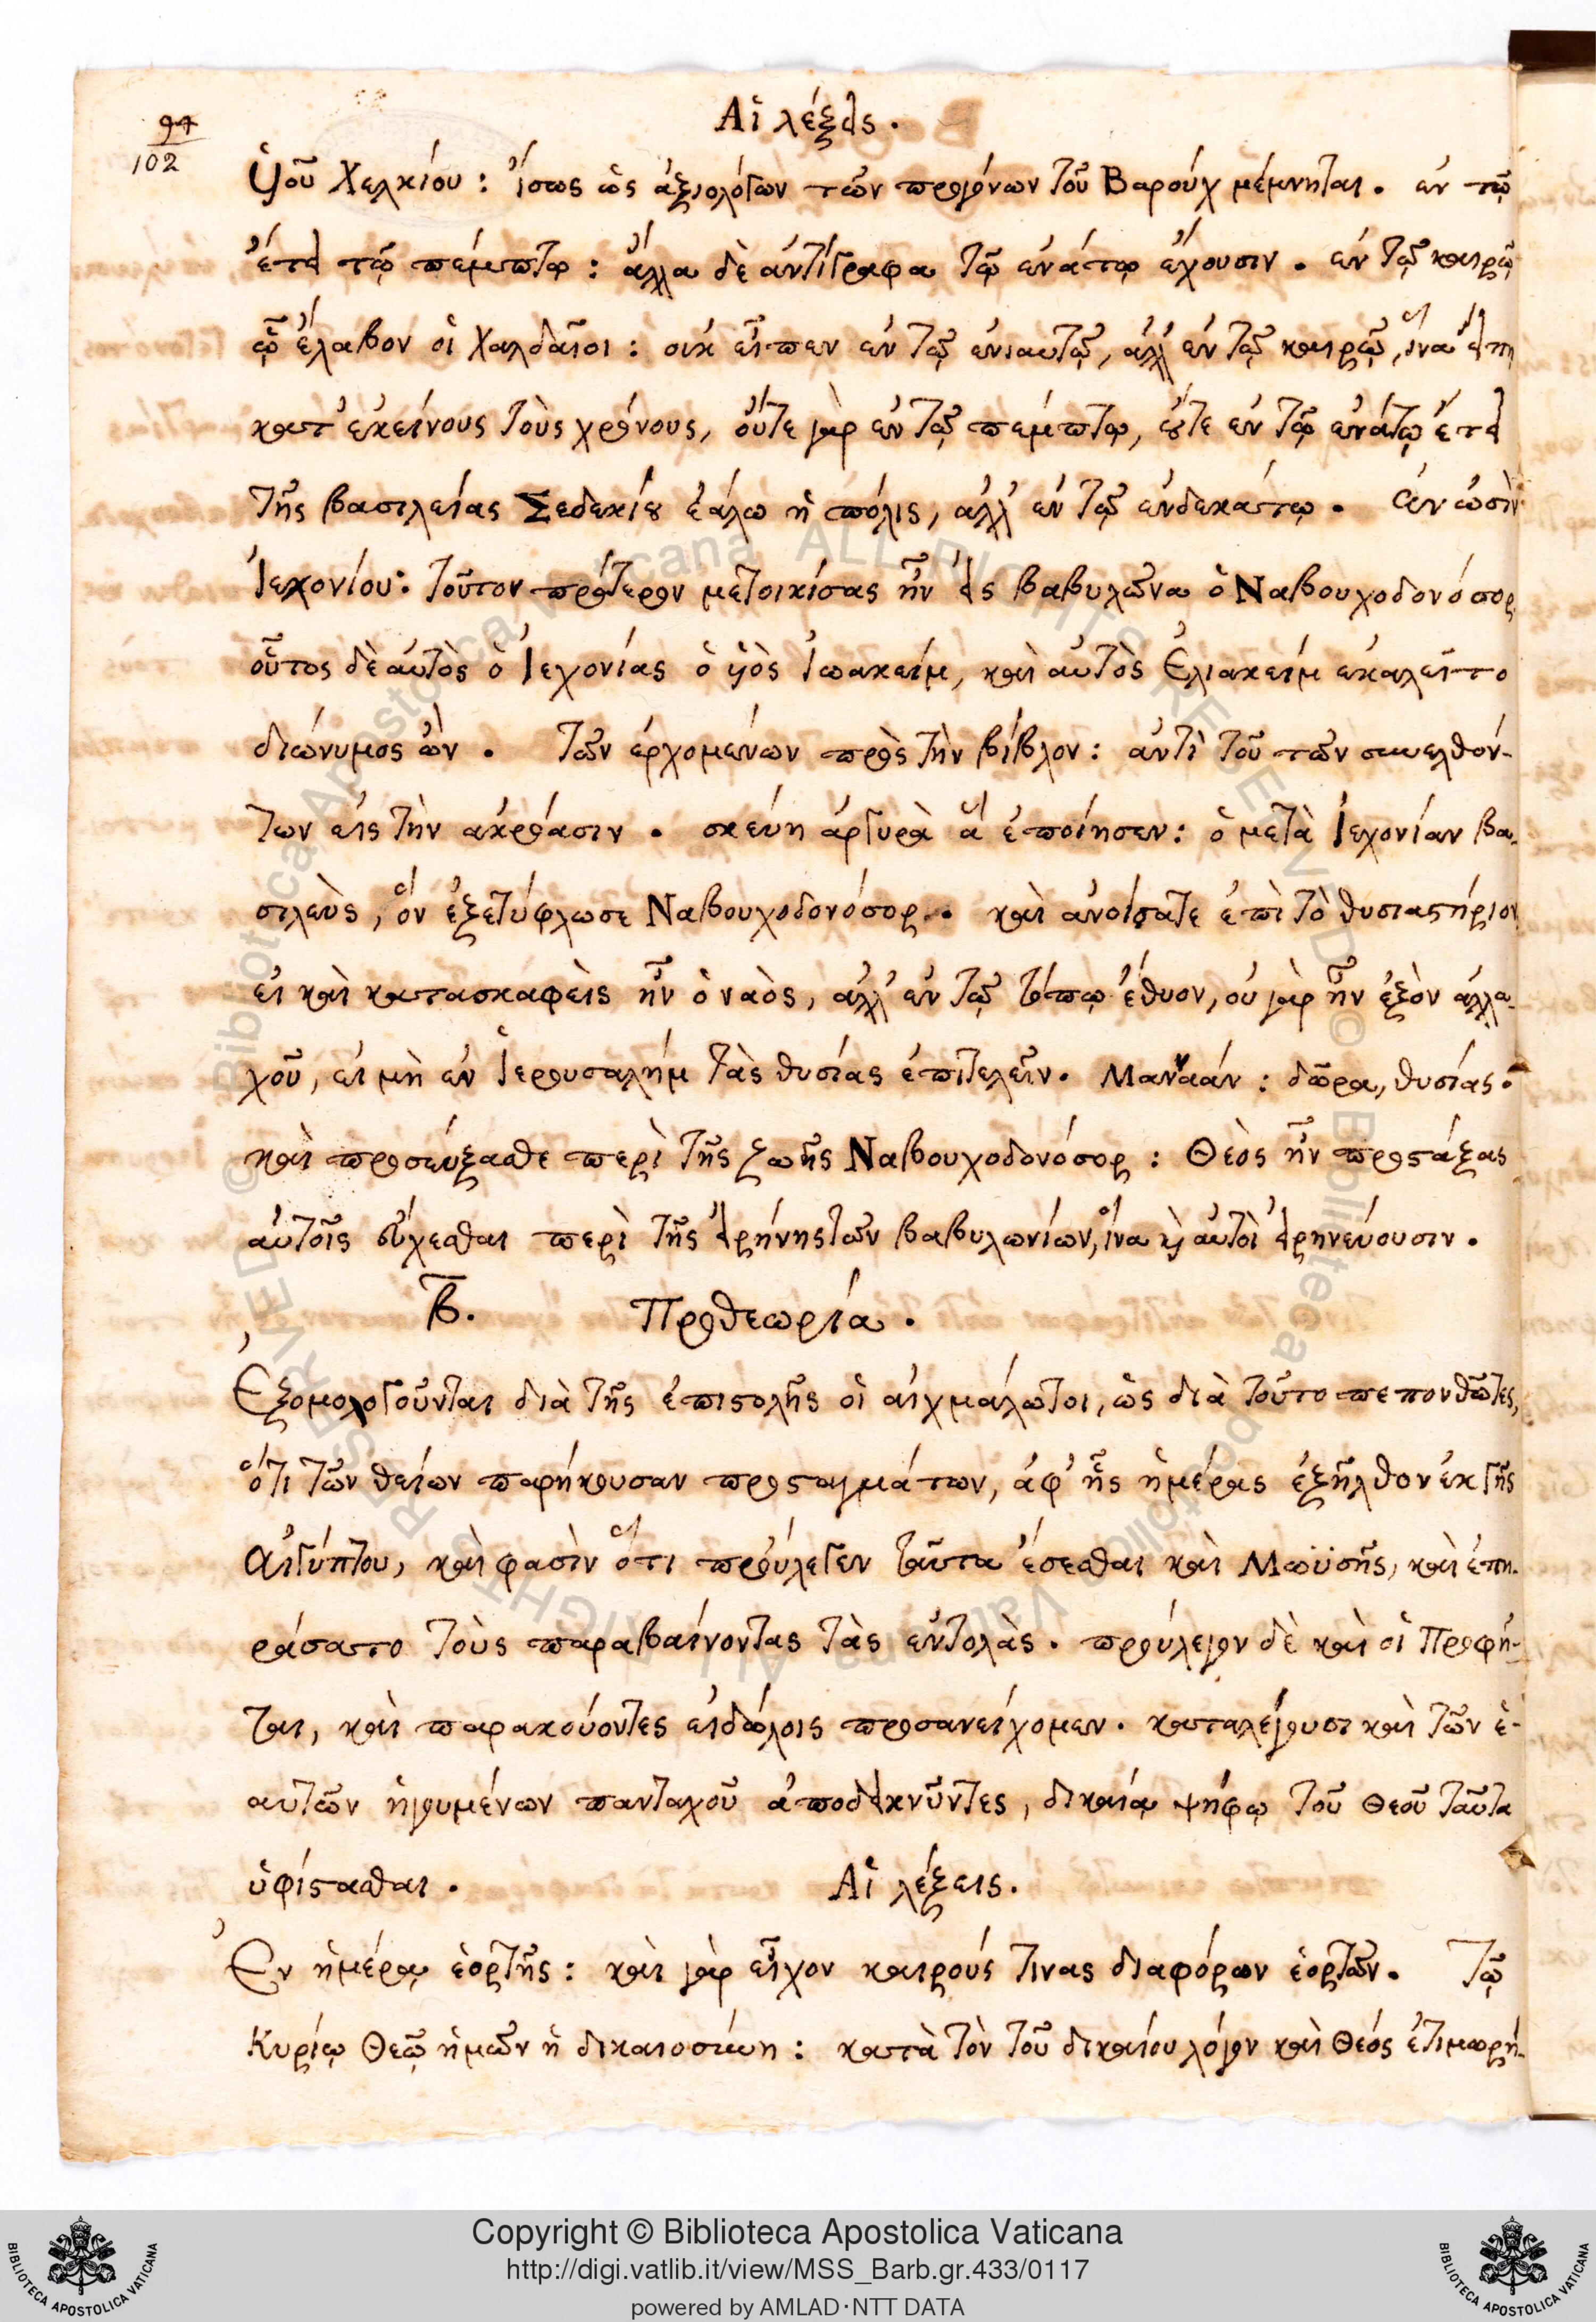 94
102
Αἱ λέξεις.
Ὑιοῦ Χελκίου: ἴσως ὡς ἀξιολόγων τῶν προγόνων τοῦ Βαρούχ μέμνηται. ἐν τῷ
ἔτει τῷ πέμπτῳ: ἄλλα δὲ ἀντίγραφα τῷ ἐνάτῳ ἔχουσιν. ἐν τῷ καιρῷ
ᾧ ἔλαβον οἱ Χαλδαῖοι: οὐκ εἶπεν ἐν τῷ ἐνιαυτῷ, ἀλλ' ἐν τῷ καιρῷ, ἵνα εἴπῃ
κατ' ἐκείνους τοὺς χρόνους, οὔτε γὰρ ἐν τῷ πέμπτῳ, οὔτε ἐν τῷ ἐνάτῳ ἔτει
τῆς βασιλείας Σεδεκίου ἑάλω ἡ πόλις, ἀλλ' ἐν τῷ ἑνδεκάτῳ. ἐν ὠσὶν
Ἰεχονίου: τοῦτον πρότερον μετοικίσας ἦν εἰς βαβυλῶνα ὁ Ναβουχοδονόσορ
οὗτος δὲ αὐτὸς ὁ Ἰεχονίας ὁ ὑιὸς Ἰωακείμ, καὶ αὐτὸς Ἐλιακείμ ἐκαλεῖτο
διώνυμος ὤν. τῶν ἐρχομένων πρὸς τὴν βίβλον: ἀντὶ τοῦ τῶν συνελθόν-
των εἰς τὴν ἀκρόασιν. σκεύη ἀργυρᾶ ἃ ἐποίησεν: ὁ μετὰ Ἰεχονίαν βα-
σιλεὺς, ὃν ἐξετύφλωσε Ναβουχοδονόσορ. καὶ ἀνοίσατε ἐπὶ τὸ θυσιαστήριον
εἰ καὶ κατασκαφεὶς ἦν ὁ ναὸς, ἀλλ' ἐν τῷ τόπῳ ἔθυον, οὐ γὰρ ἦν ἐξὸν ἀλλα-
χοῦ, εἰ μὴ ἐν Ἱερουσαλήμ τὰς θυσίας ἐπιτελεῖν. Μαναάν: δῶρα, θυσίας.
καὶ προσεύξασθε περὶ τῆς ζωῆς Ναβουχοδονόσορ: Θεὸς ἦν προστάξας
αὐτοῖς εὔχεσθαι περὶ τῆς εἰρήνης τῶν βαβυλωνίων, ἵνα καὶ αὐτοὶ εἰρηνεύουσιν.
β. Προθεωρία.
Ἐξομολογοῦνται διὰ τῆς ἐπιστολῆς οἱ αἰχμαλώτοι, ὡς διὰ τοῦτο πεπονθῶτες,
ὅτι τῶν θείων παρήκουσαν προσταγμάτων, ἀφ' ἧς ἡμέρας ἐξῆλθον ἐκ γῆς
Αἰγύπτου, καὶ φασὶν ὅτι προὔλεγεν ταῦτα ἔσεσθαι καὶ Μωϋσῆς, καὶ ἐπη-
ράσατο τοὺς παραβαίνοντας τὰς ἐντολὰς. προὔλεγον δὲ καὶ οἱ Προφή-
ται, καὶ παρακούοντες εἰδώλοις προσανείχομεν. καταλέγουσι καὶ τῶν ἑ-
αυτῶν ἡγουμένων πανταχοῦ ἀποδεικνῦντες, δικαίᾳ ψήφῳ τοῦ Θεοῦ ταῦτα
ὑφίστασθαι. Αἱ λέξεις.
Ἐν ἡμέρᾳ ἑορτῆς: καὶ γὰρ εἶχον καιρούς τινας διαφόρων ἑορτῶν. Τῷ
Κυρίῳ Θεῷ ἡμῶν ἡ δικαιοσύνη: κατὰ τὸν τοῦ δικαίου λόγον καὶ Θεός ἐτιμωρή-
Copyright © Biblioteca Apostolica Vaticana
http://digi.vatlib.it/view/MSS_Barb.gr.433/0117
powered by AMLAD·NTT DATA
BIBLIOTECA APOSTOLICA VATICANA
BIBLIOTECA APOSTOLICA VATICANA